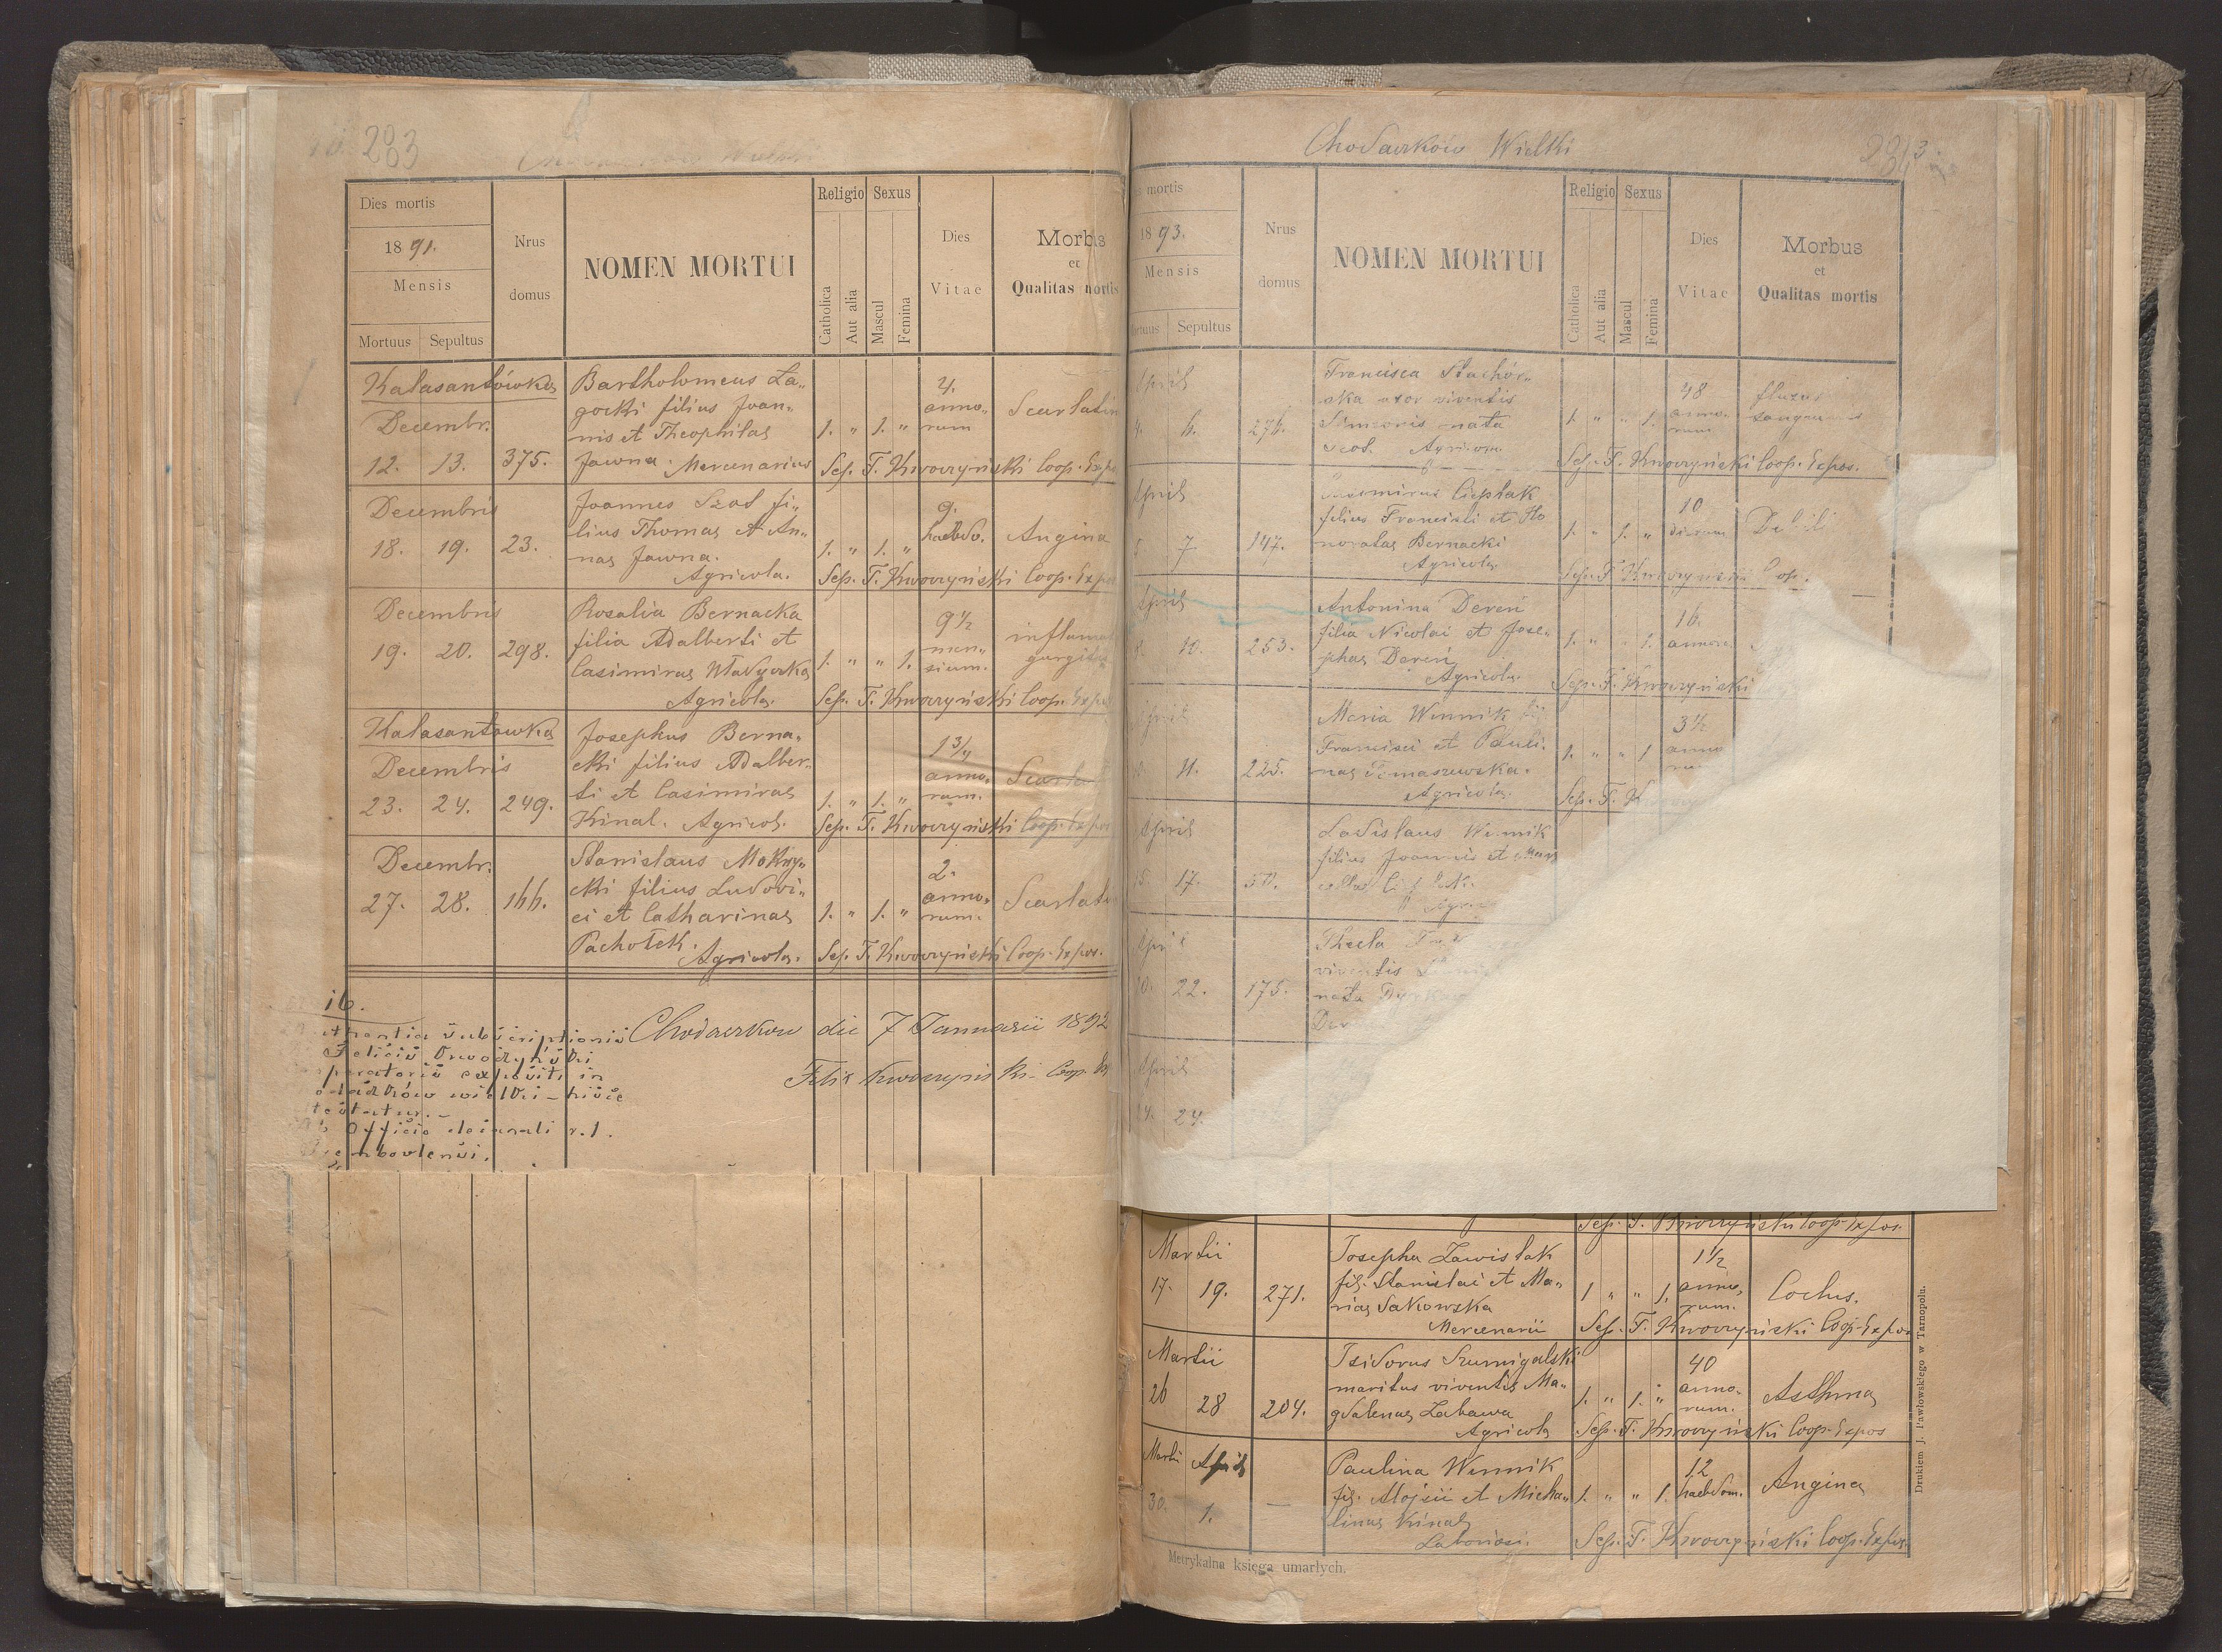 283
Dies mortis
1891.
Mensis
Mortuus Sepultus
Nrus
domus
NOMEN MORTUI
Religio
Catholica
Aut alia
Sexus
Mascul
Femina
Dies
Vitae
Morbus
et
Qualitas mortis
Kalasantówka
Decembr.
12. 13. 375.
Bartholomeus La„
gocki filius Joan„
nis et Theophilae
Jawna. Mercenarius
1. „ 1. „
4.
anno„
rum
Scarlatin
Sep. F. Kwoczyński Coop. Expo
Decembris
18. 19. 23.
Joannes Szod fi„
lius Thomae et An„
nae Jawna.
Agricola.
1. „ 1. „
9.
hebdo.
Angina
Sep. F. Kwoczyński Coop. Expo
Decembris
19. 20. 298.
Rosalia Bernacka
filia Adalberti et
Casimirae Władycka
Agricola.
1. „ „ 1.
9 1/2
men„
sium.
inflamat
gurgitis
Sep. F. Kwoczyński Coop. Expo
Kalasantowka
Decembris
23. 24. 249.
Josephus Berna„
cki filius Adalber„
ti et Casimirae
Kinal. Agricol.
1. „ 1. „
1 3/4
anno„
rum.
Scarlat
Sep. F. Kwoczyński Coop. Expos
Decembr.
27. 28. 166.
Stanislaus Mokrzy„
cki filius Ludovi„
ci et Catharinae
Pachołek.
Agricola.
1. „ 1. „
2.
anno„
rum.
Scarlati
Sep. F. Kwoczyński Coop. Expos.
16.
subscriptionis
Felicis Kwoczyński
expositi in
wielki - hisce
testatur. -
Officio decanali r. l.
embovlensi.
Chodaczkow die 7 Januarii 1892
Felix Kwoczyński Coop. Ex
Chodaczków Wielki
mortis
1893.
Mensis
Sepultus
Nrus
domus
NOMEN MORTUI
Religio
Catholica
Aut alia
Sexus
Mascul
Femina
Dies
Vitae
Morbus
et
Qualitas mortis
Aprilis
4. 6. 276.
Francisca Stachów„
ska uxor viventis
nata
Szod. Agricola
1. „ „ 1.
48
anno„
rum
fluxus
Sep. F. Kwoczyński Coop. Expos.
Aprilis
5 7 147.
Cieplak
filius Francisci et Ho
noratae Bernacki
Agricola
1. „ 1. „
10
dierum
Debili
Sep. F. Kwoczyński Coop.
Aprilis
10. 253.
Antonina Dereń
filia Nicolai et Jose„
phae Dereń
Agricola.
1. „ „ 1.
16.
annor.
Sep. F. Kwoczyński
Aprilis
11. 225.
Maria Winnik fil
Francisci et Pauli„
nae Tomaszewska.
Agricola.
1. „ „ 1
3 1/2
anno
rum
Sep. F. K
Aprilis
15 17. 50.
Ladislaus Winnik
filius Joannis et Mar
Aprilis
20. 22. 175.
Thecla
viventis
nata
Aprilis
24. 24.
Sep. F. Kwoczyński Coop. Expos.
Martii
17. 19. 271.
Josepha Zawiślak
fil. Stanislai et Ma„
riae Sakowska
Mercenarii
1 „ „ 1.
1 1/2
anno„
rum.
Coclus.
Sep. F. Kwoczyński Coop. Expos
Martii
26 28 204.
Isidorus Szumigalski
maritus viventis Ma„
gdalenae Labawa
Agricola
1. „ 1. „
40
anno„
rum.
Asthma
Sep. F. Kwoczyński Coop. Expos
Martii Aprilis
30. 1. —
Paulina Winnik
fil. Alojsii et Micha„
linae Kinal
Laboriosi.
1. „ „ 1.
12
hebdom.
Angina
Sep. F. Kwoczyński Coop. Expos.
Metrykalna księga umarłych.
Drukiem J. Pawłowskiego w Tarnopolu.